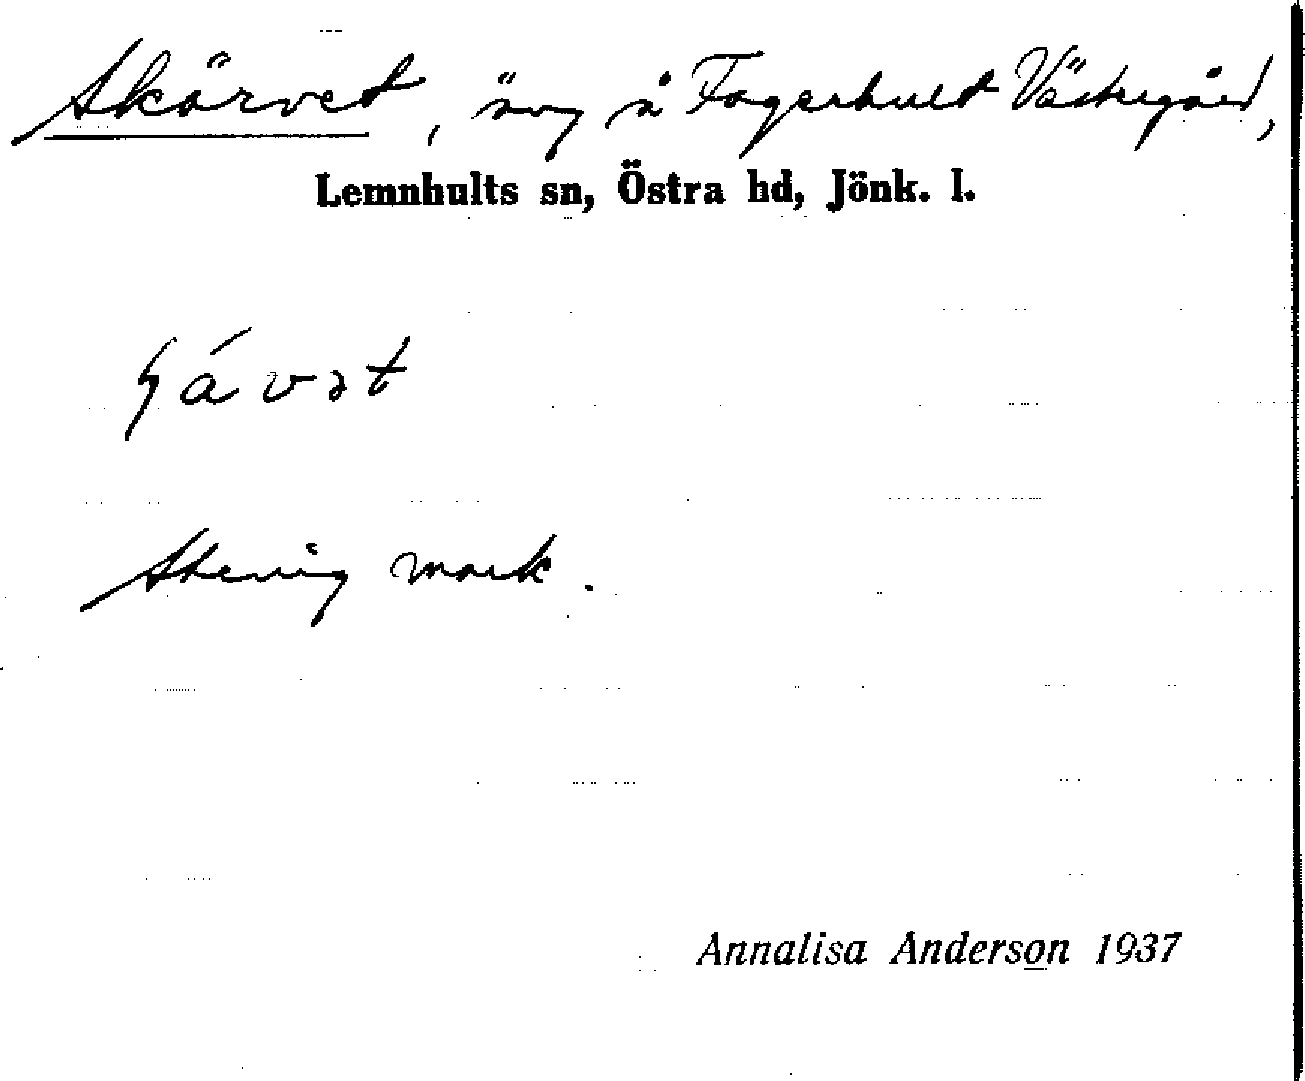 Skörvet, äng å Fagerhult Västregård,
Lemnhults sn, Östra hd, Jönk. l.
Stenig mark.
Annalisa Anderson 1937